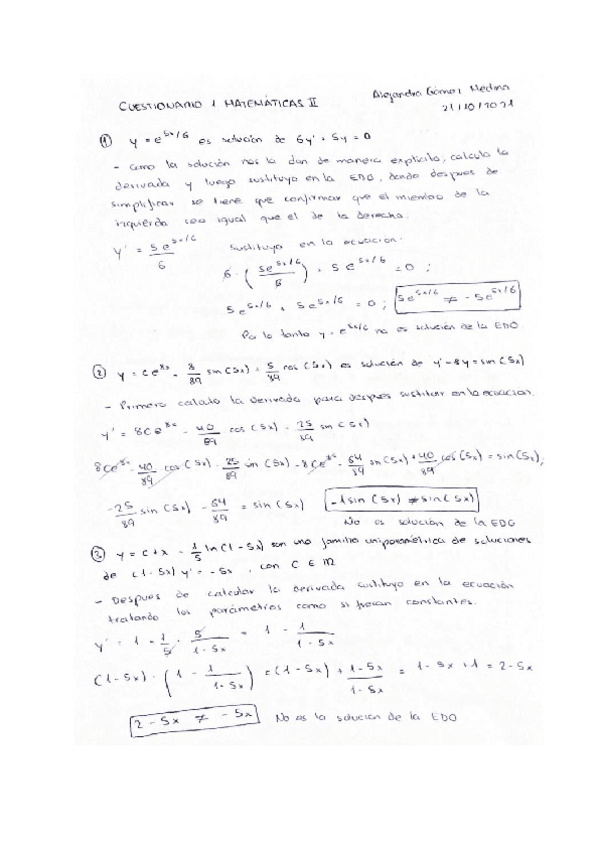 Alejandra Gómez Medina
CUESTIONARIO 1 MATEMÁTICAS II
21/10/2021
① y = e^(5x/6) es solución de 6y' + 5y = 0
- Como la solución nos la dan de manera explícita, calculo la
derivada y luego sustituyo en la EDO, donde despues de
simplificar se tiene que confirmar que el miembro de la
izquierda sea igual que el de la derecha.
y' = 5e^(5x/6) / 6 Sustituyo en la ecuacion:
6 · (5e^(5x/6) / 6) + 5e^(5x/6) = 0 ;
5e^(5x/6) + 5e^(5x/6) = 0 ; 5e^(5x/6) ≠ - 5e^(5x/6)
Por lo tanto y = e^(5x/6) no es solución de la EDO
② y = Ce^(8x) - 8/89 sin(5x) + 5/89 cos(5x) es solución de y' - 8y = sin(5x)
- Primero calculo la derivada para despues sustituir en la ecuacion.
y' = 8Ce^(8x) - 40/89 cos(5x) - 25/89 sin(5x)
8Ce^(8x) - 40/89 cos(5x) - 25/89 sin(5x) - 8Ce^(8x) - 64/89 sin(5x) + 40/89 cos(5x) = sin(5x),
-25/89 sin(5x) - 64/89 = sin(5x) -1 sin(5x) ≠ sin(5x)
No es solución de la EDO
③ y = C + x - 1/5 ln(1-5x) son una familia uniparamétrica de soluciones
de (1-5x) y' = -5x , con C ∈ ℝ
- Despues de calcular la derivada sustituyo en la ecuación
tratando los parámetros como si fueran constantes.
y' = 1 - 1/5 · 5/(1-5x) = 1 - 1/(1-5x)
(1-5x) · (1 - 1/(1-5x)) = (1-5x) + (1-5x)/(1-5x) = 1-5x+1 = 2-5x
2 - 5x ≠ - 5x No es la solución de la EDO